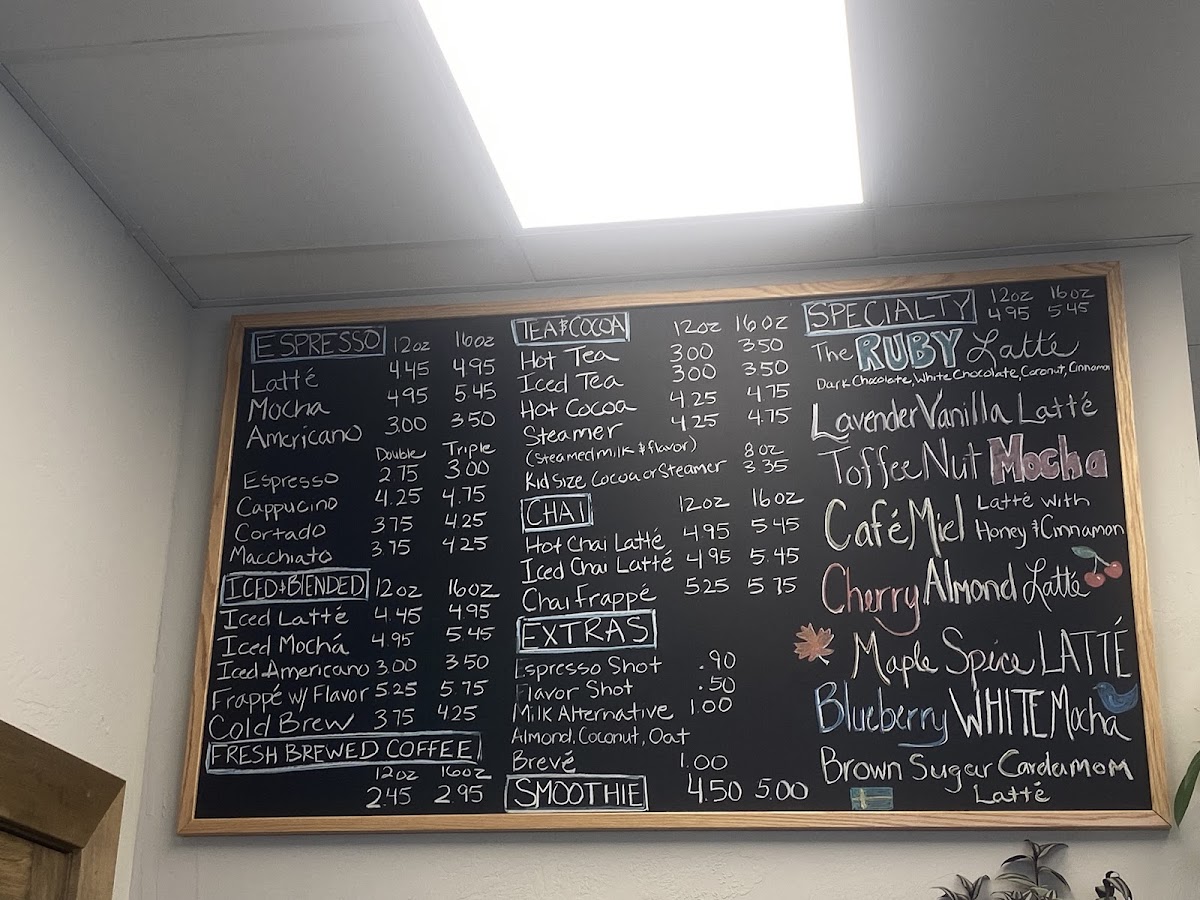 ESPRESSO 12oz 16oz
Latté 4.45 4.95
Mocha 4.95 5.45
Americano 3.00 3.50
Double Triple
Espresso 2.75 3.00
Cappucino 4.25 4.75
Cortado 3.75 4.25
Macchiato 3.75 4.25
ICED & BLENDED 12oz 16oz
Iced Latté 4.45 4.95
Iced Mochá 4.95 5.45
Iced Americano 3.00 3.50
Frappé w/ Flavor 5.25 5.75
Cold Brew 3.75 4.25
FRESH BREWED COFFEE
12oz 16oz
2.45 2.95
TEA & COCOA 12oz 16oz
Hot Tea 3.00 3.50
Iced Tea 3.00 3.50
Hot Cocoa 4.25 4.75
Steamer 4.25 4.75
(Steamed milk & flavor) 8oz
Kid Size Cocoa or Steamer 3.35
CHAI 12oz 16oz
Hot Chai Latté 4.95 5.45
Iced Chai Latté 4.95 5.45
Chai Frappé 5.25 5.75
EXTRAS
Espresso Shot .90
Flavor Shot .50
Milk Alternative 1.00
Almond, Coconut, Oat
Brevé 1.00
SMOOTHIE 4.50 5.00
SPECIALTY 12oz 16oz
4.95 5.45
The RUBY Latté
Dark Chocolate, White Chocolate, Coconut, Cinnamon
Lavender Vanilla Latté
Toffee Nut Mocha
Café Miel Latté with
Honey & Cinnamon
Cherry Almond Latté
Maple Spice LATTÉ
Blueberry WHITE Mocha
Brown Sugar Cardamom
Latté